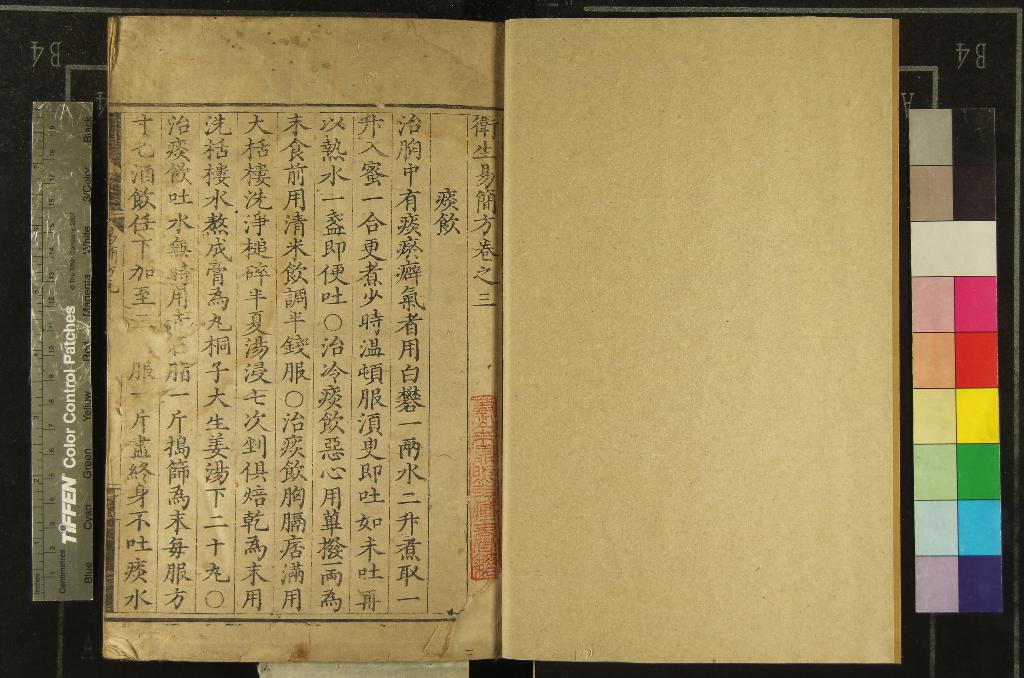 衛生易簡方卷之三
痰飲
治胸中有痰瘀癖氣者用白礬一兩水二升煮取一
升入蜜一合更煮少時溫頓服湏臾即吐如未吐再
以熱水一盞即便吐○治冷痰飲惡心用蓽撥一兩為
末食前用清米飲調半錢服○治痰飲胸膈痞滿用
大栝樓洗淨槌碎半夏湯浸七次剉俱焙乾為末用
洗栝樓水熬成膏為丸桐子大生姜湯下二十丸○
治痰飲吐水無時用赤石脂一斤搗篩為末每服方
寸匕酒飲任下加至二 服一斤盡終身不吐痰水
TIFFEN Color Control Patches
© The Tiffen Company, 2007
Inches
Centimetres
Blue
Cyan
Green
Yellow
Red
Magenta
White
3/Color
Black
B4
B4
A